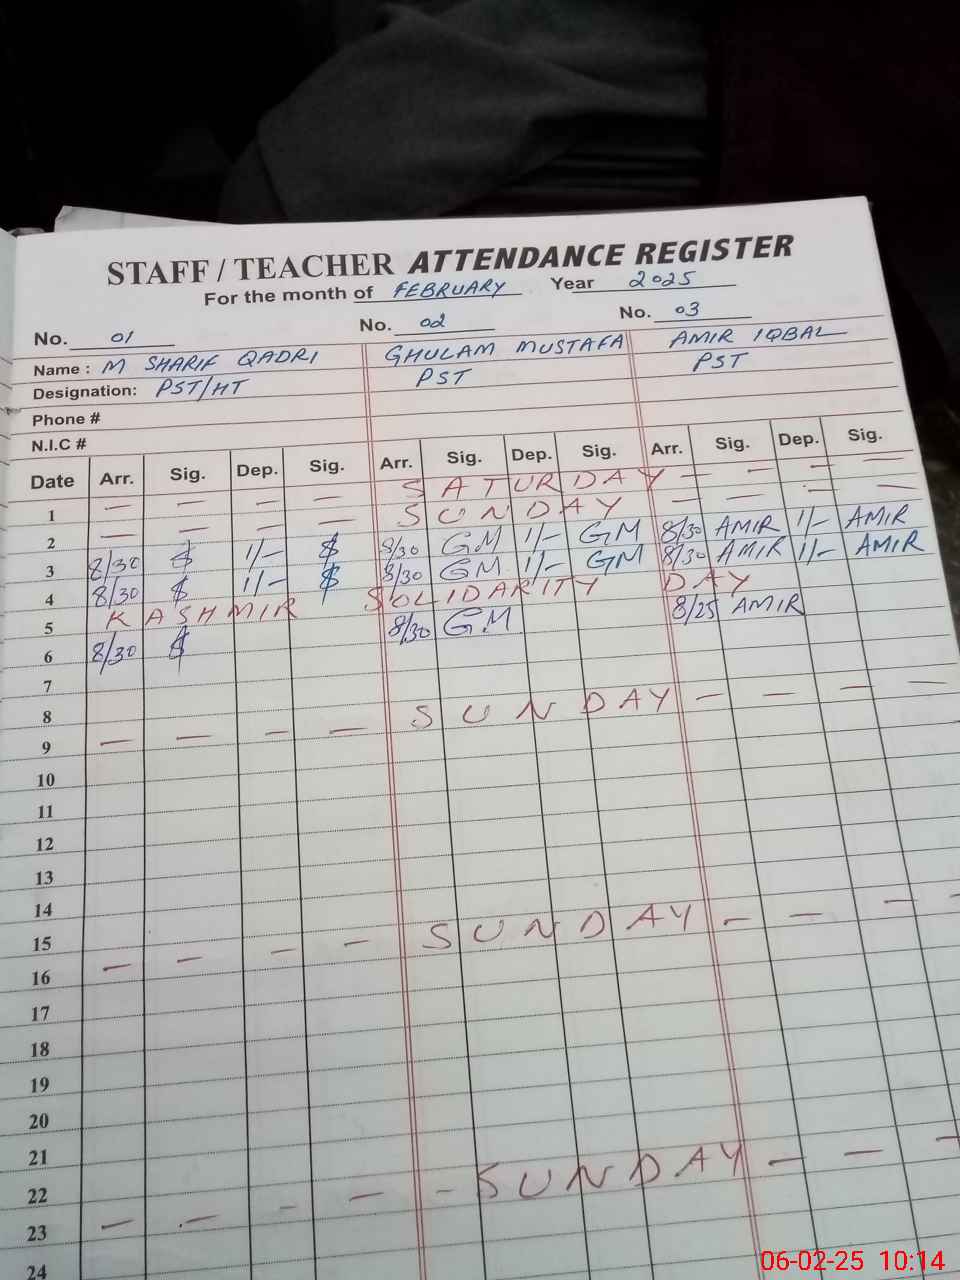 STAFF / TEACHER ATTENDANCE REGISTER
For the month of FEBRUARY Year 2025
No. 01 No. 02 No. 03
Name : M SHARIF QADRI GHULAM MUSTAFA AMIR IQBAL
Designation: PST/HT PST PST
Phone #
N.I.C #
Date Arr. Sig. Dep. Sig. Arr. Sig. Dep. Sig. Arr. Sig. Dep. Sig.
1 — — — — SATURDAY — — — —
2 — — — — SUNDAY — — — —
3 8/30 1/- 8/30 GM 1/- GM 8/30 AMIR 1/- AMIR
4 8/30 1/- 8/30 GM 1/- GM 8/30 AMIR 1/- AMIR
5 KASHMIR SOLIDARITY DAY
6 8/30 8/30 GM 8/25 AMIR
7
8
9 — — — — SUNDAY — — — —
10
11
12
13
14
15
16 — — — — SUNDAY — — — —
17
18
19
20
21
22
23 — — — — — SUNDAY — — —
24
06-02-25 10:14